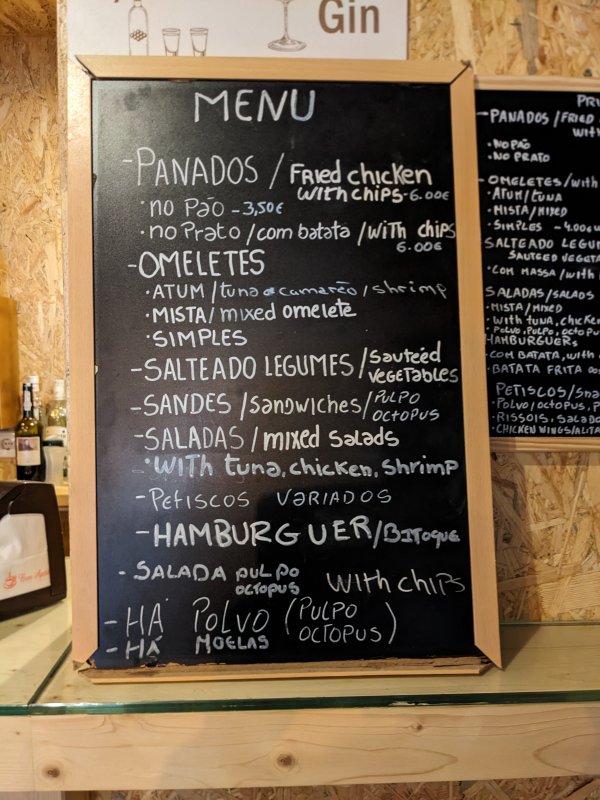 Gin
MENU
-PANADOS / FRIED chicken
WITH CHIPS-6.00€
• no Pão -3,50€
• no Prato /com batata /WITH chips
6.00€
-OMELETES
• ATUM / tuna e camarão / shrimp
• MISTA / mixed omelete
• SIMPLES
-SALTEADO LEGUMES / Sauteéd
VEGETABLES
-SANDES / SanDwiches / PULPO
OCTOPUS
-SALADAS / mixed salads
• WITH tuna, chicken, Shrimp
-Petiscos VARIADOS
-HAMBURGUER/BITOQUE
-SALADA PULPO
OCTOPUS
WITH CHIPS
-HÁ POLVO (PULPO
OCTOPUS)
-HÁ MOELAS
PRI
-PANADOS / FRIED
WITH
• NO PÃO
• NO PRATO
-OMELETES / WITH
• ATUM / tuna
• MISTA / MIXED
• SIMPLES - 4.00€
SALTEADO LEGUM
SAUTEED VEGETA
• COM MASSA / WITH
SALADAS / SALADS
• MISTA / MIXED
• WITH TUNA, CHICKEN
• POLVO, PULPO, OCTOPU
HAMBURGUERS
• COM BATATA, WITH
• BATATA FRITA
PETISCOS / SNA
• POLVO / OCTOPUS, P
• RISSOIS, SALADO
• CHICKEN WINGS/ALITA